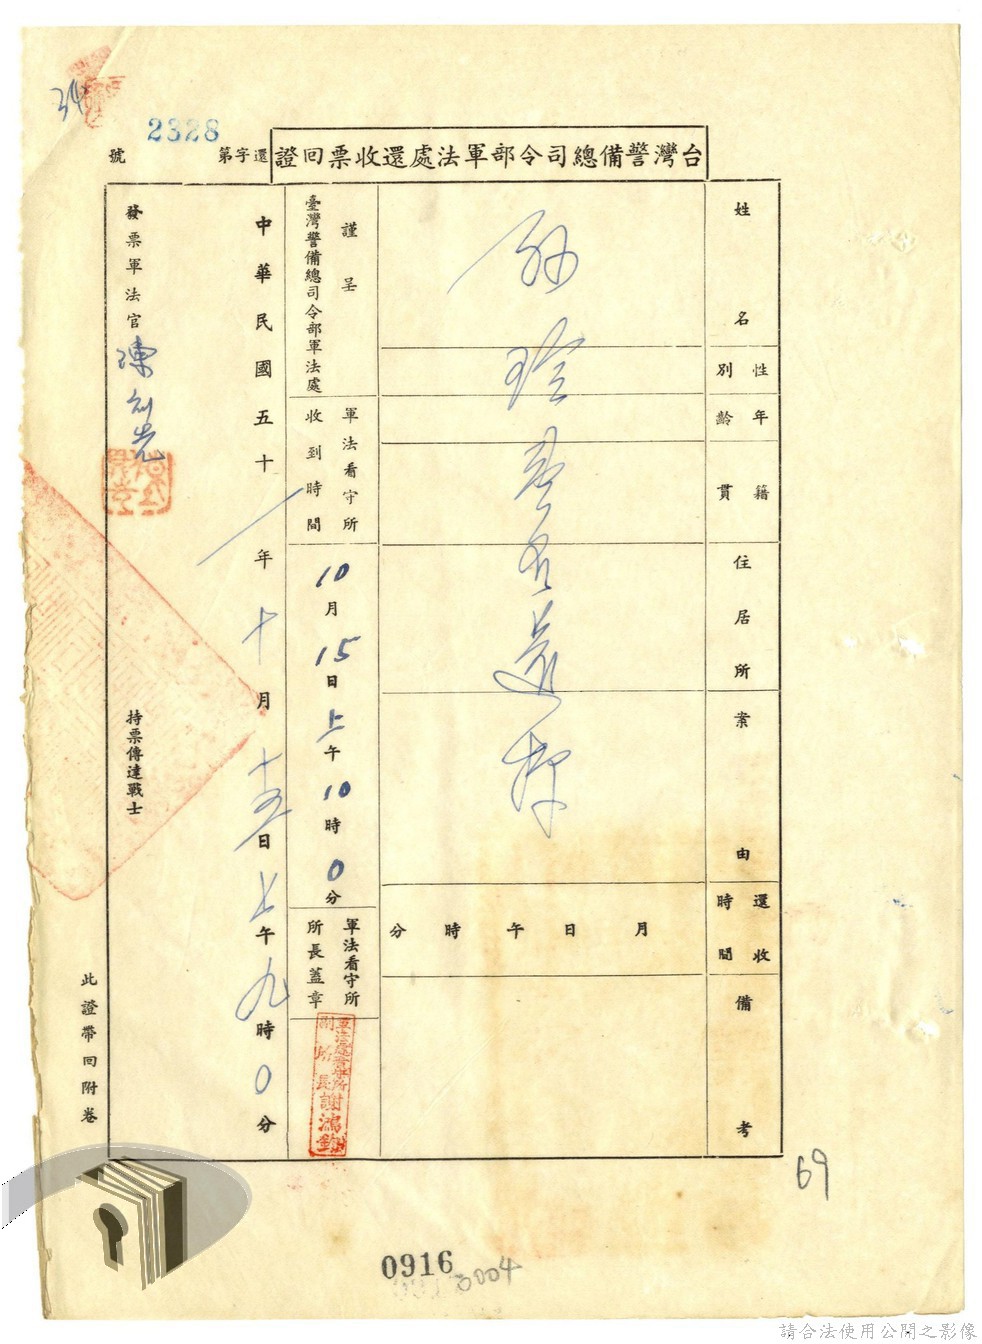 34
2328
台灣警備總司令部軍法處還收票回證
還字第
號
姓名
性別
年齡
籍貫
住居所
案由
還收時間
備考
孫
月日午時分
謹呈
臺灣警備總司令部軍法處
軍法看守所
收到時間
10月15日上午10時0分
軍法看守所
所長蓋章
副所長謝鴻
中華民國五十一年十月十五日上午九時0分
發票軍法官
陳
持票傳達戰士
此證帶回附卷
69
0916
3004
請合法使用公開之影像